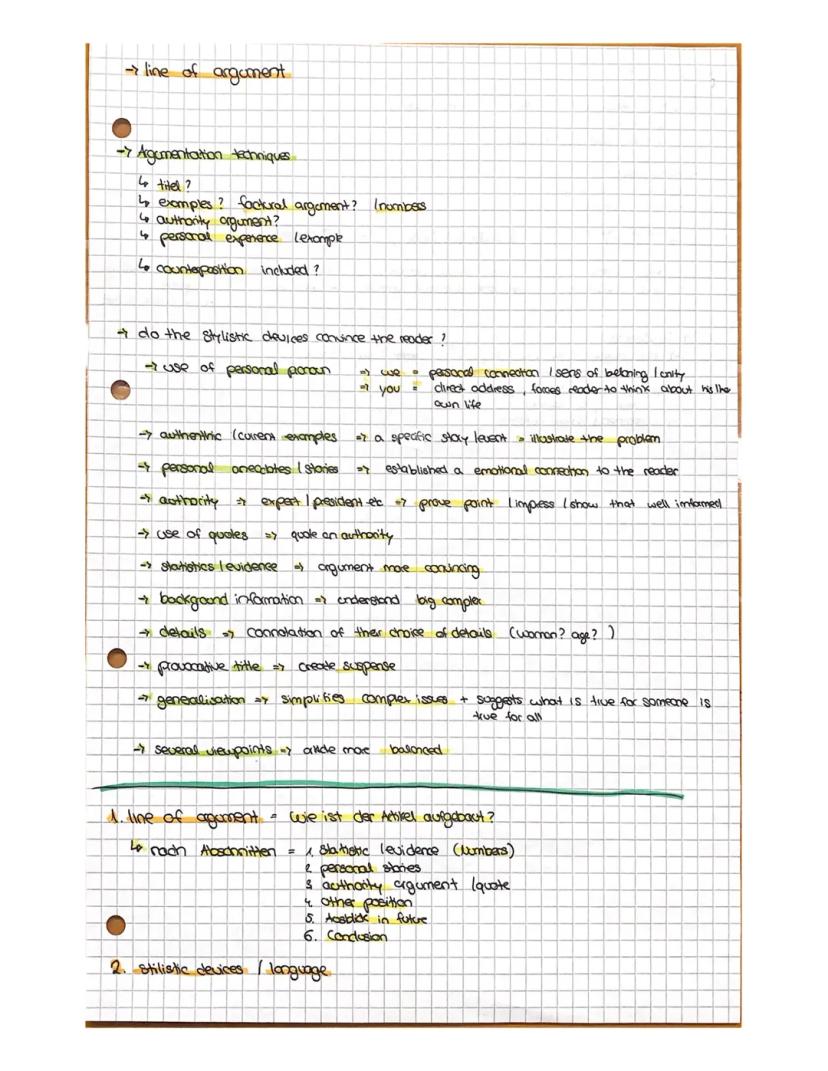 → line of argument
→ Agumentation techniques
↳ titel?
↳ examples? factural argument? / numbers
↳ authority argument?
↳ personal experence / example
↳ counterposition included?
→ do the stylistic devices convince the reader?
→ use of personal pronoun => we = personal connection / sens of beloning / unity
=> you = direct address, forces reader to think about his/her
own life
→ authenthric / current examples => a specific story / event = illustrate the problem
→ personal anecdotes / stories => established a emotional connection to the reader
→ authority => expert / president etc => prove point / impress / show that well informed
→ use of quotes => quote an authority
→ statistics / evidence => argument more convincing
→ background information => understand big complex
→ details => connotation of their choice of details (woman? age?)
→ provocative title => create suspense
→ generalisation => simplifies complex issues + suggests what is true for someone is
true for all
→ several viewpoints => article more balanced
1. line of argument = Wie ist der Artikel aufgebaut?
↳ nach Abschnitten = 1. Statistic / evidence (Numbers)
2. personal stories
3. authority argument / quote
4. other position
5. Ausblick in future
6. Conclusion
2. stilistic devices / language